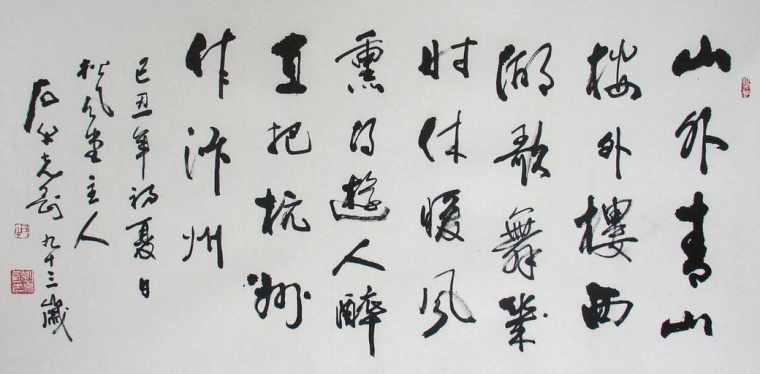 山外青山
楼外樓西
湖歌舞幾
时休暖风
熏得遊人醉
直把杭州
作汴州
己丑年初夏日
松风堂主人
九十三歲